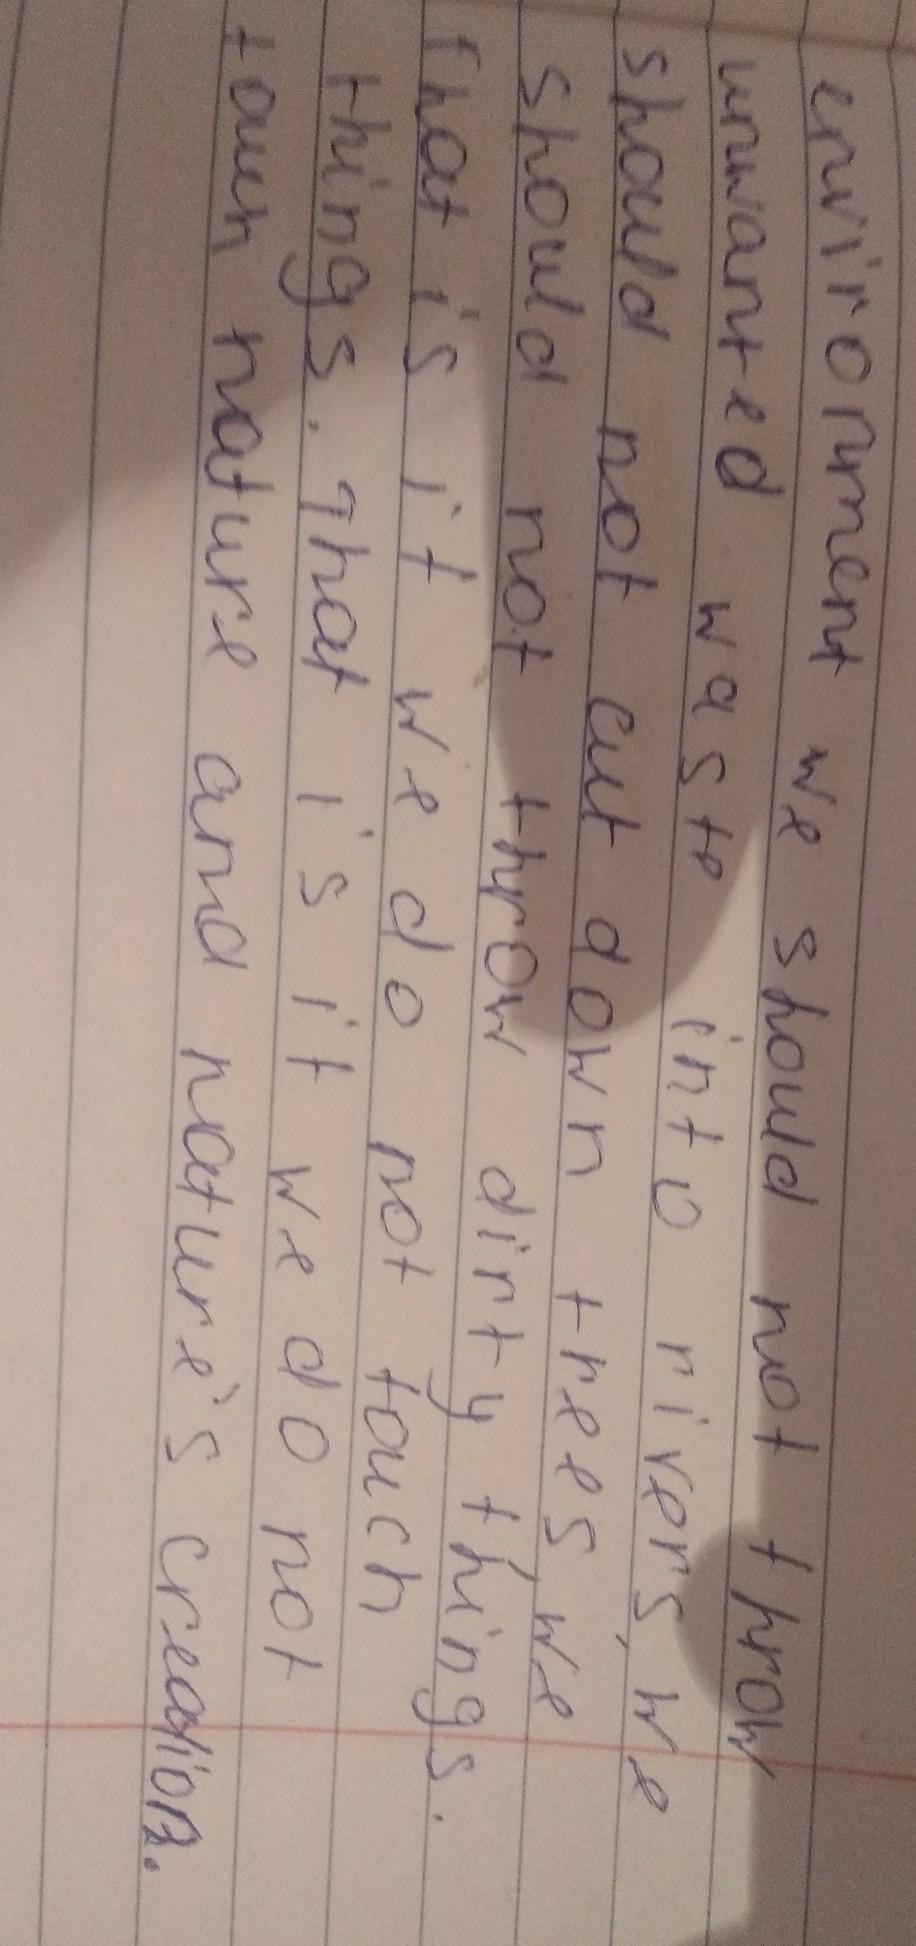 environment we should not throw
unwanted waste into rivers, we
should not cut down trees, we
should not throw dirty things.
that is it we do not touch
things. That is it we do not
touch nature and nature's creation.